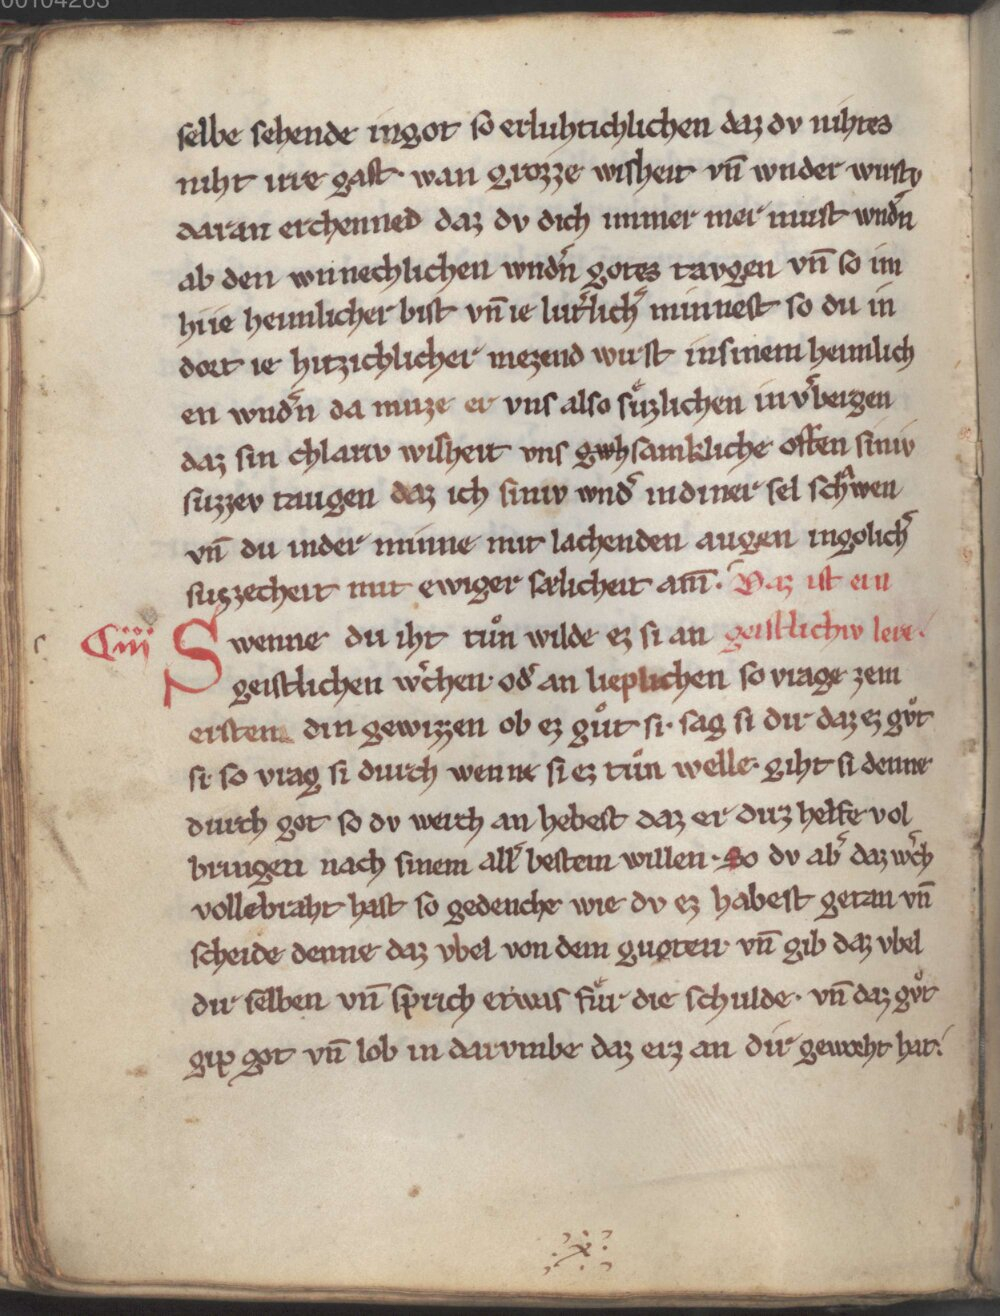 selbe sehende ingot so erluhtichlichen daz dv nihtes
niht irre gast· wan grozze wisheit vn̄ wnder wirstv
daran erchenned daz dv dich immer mer mvst wnd̉n
ab den wnnechlichen wnd̉n gotes tavgen vn̄ so im
hi ie heimlicher bist vn̄ ie lut̉lich̉ minnest so du in
dort ie hitzichlicher niezend wirst in sinem heimlich
en wnd̉n da mvze er vns also sůzlichen in v̉bergen
daz sin chlariv wisheit vns samkliche offen siniv
suzzev taugen daz ich siniv wnd̉ in diner sel schawen
vn̄ du inder minne mit lachenden augen ingotlich̉
suzzecheit mit ewiger sælicheit am̄· Daz ist ein
Ciiij Swenne du iht tůn wilde ez si an geistlichiv lere·
geistlichen w̉chen od̉ an lieplichen so vrage zem
ersten din gewizzen ob ez gůt si· sag si dir daz ez gv̊t
si· so vrag si durch wenne si ez tůn welle· giht si denne
durch got so dv werch an hebest daz er dirz helfe vol
bringen nach sinem all̉ bestem willen· So dv ab̉ daz w̉ch
vollebraht hast so gedenche wie dv ez habest getan vn̄
scheide denne daz vbel von dem guoten vn̄ gib daz vbel
dir selben vn̄ sprich etwas fůr die schulde· vn̄ daz gv̊t
gip got vn̄ lob in darvmbe daz erz an dir geworht hat·